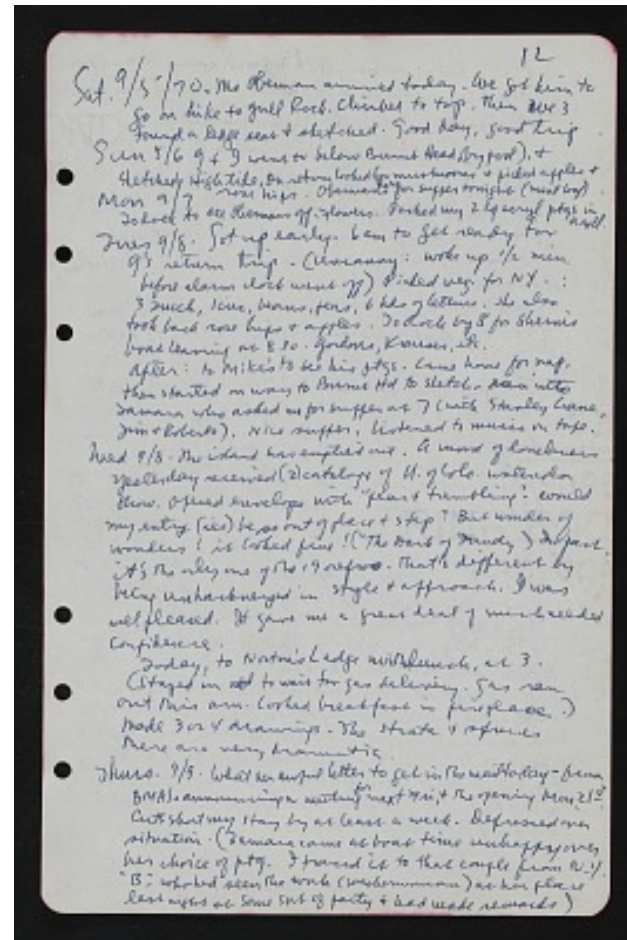 12
Sat. 9/5/70. The Oberman arrived today. We got him to
go on hike to Gull Rock. Climbed to top. Then we 3
found a ledge seat & sketched. Good day, good trip
Sun 9/6 9 & I went to below Burnt Head, (by pool), &
sketched high tide. On return looked for mushrooms & picked apples &
Mon 9/7 rose hips. Obermans for supper tonight
To dock to see Obermans off. Flowers. Packed my 2 lg acryl ptgs in
Tues 9/8. Got up early. 6am to get ready for
G's return trip. (Uncanny: woke up 1/2 min.
before alarm clock went off) Picked veg. for NY. :
3 zucch, beans, peas, 6 hds of lettuce. She also
took back rose hips & apples. To dock by 8 for
boat leaving at 8:30. Gordons, Krauser, etc.
After: to Mike's to see his ptgs. Came home for nap.
then started on way to Burnt Hd to sketch. into
Tamara who asked us for supper at 7 (with Stanley
Jim & Roberta). Nice supper. Listened to music on tape.
Wed 9/8. The island has emptied out. A mood of loneliness
Yesterday received (2) catalogs of U. of Colo. watercolor
show. Opened envelope with "fear & trembling". Would
my entry (ies) be as out of place & step? But wonder of
wonders! it looked fine! ("The Dark of ) In fact,
it's the only one of the 19 repros. that's different by
being in style & approach. I was
well pleased. It gave me a great deal of much needed
confidence.
Today, to Norton's Ledge with lunch, at 3.
(Stayed in to wait for gas delivery. Gas ran
out this am. Cooked breakfast in fireplace.)
Made 3 or 4 drawings. The strata &
there are very dramatic.
Thurs. 9/9. What an awful letter to get in the mail today - from
announcing a meeting for next & the opening Mon 21st
Cuts short my stay by at least a week. Depressed over
situation. (Tamara came at boat time unhappy over
her choice of ptg. I traced it to that couple from N.Y.
"B", who had seen the work at her place
last night at some sort of party & had made remarks)